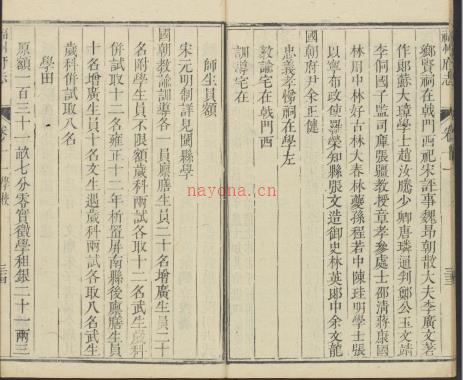 鄉賢祠在戟門西祀宋評事魏昂朝散大夫李廣文著
作郎蘇大璋學士趙汝騰少卿唐璘通判鄭公玉文靖
李侗國子監司庫張疆教授章孝參處士邵清蔣康國
林用中林好古林大春林夔孫程若中陳珪明學士張
以寧布政使羅榮知縣張文造御史林英郎中余文龍
國朝府尹余正健
忠義孝悌祠在學左
教諭宅在戟門西
訓導宅在
師生員額
宋元明制詳見閩縣學
國朝教諭訓導各一員廩膳生員二十名增廣生員二十
名附學生員不限額歲科兩試各取十二名武生歲科
併試取十二名雍正十二年析置屏南縣後廩膳生員
十名增廣生員十名文生遇歲科兩試各取八名武生
歲科併試取八名
學田
原額一百三十一畝七分零實徵學租銀二十一兩三
福州府志
卷
學校
nayona.cn